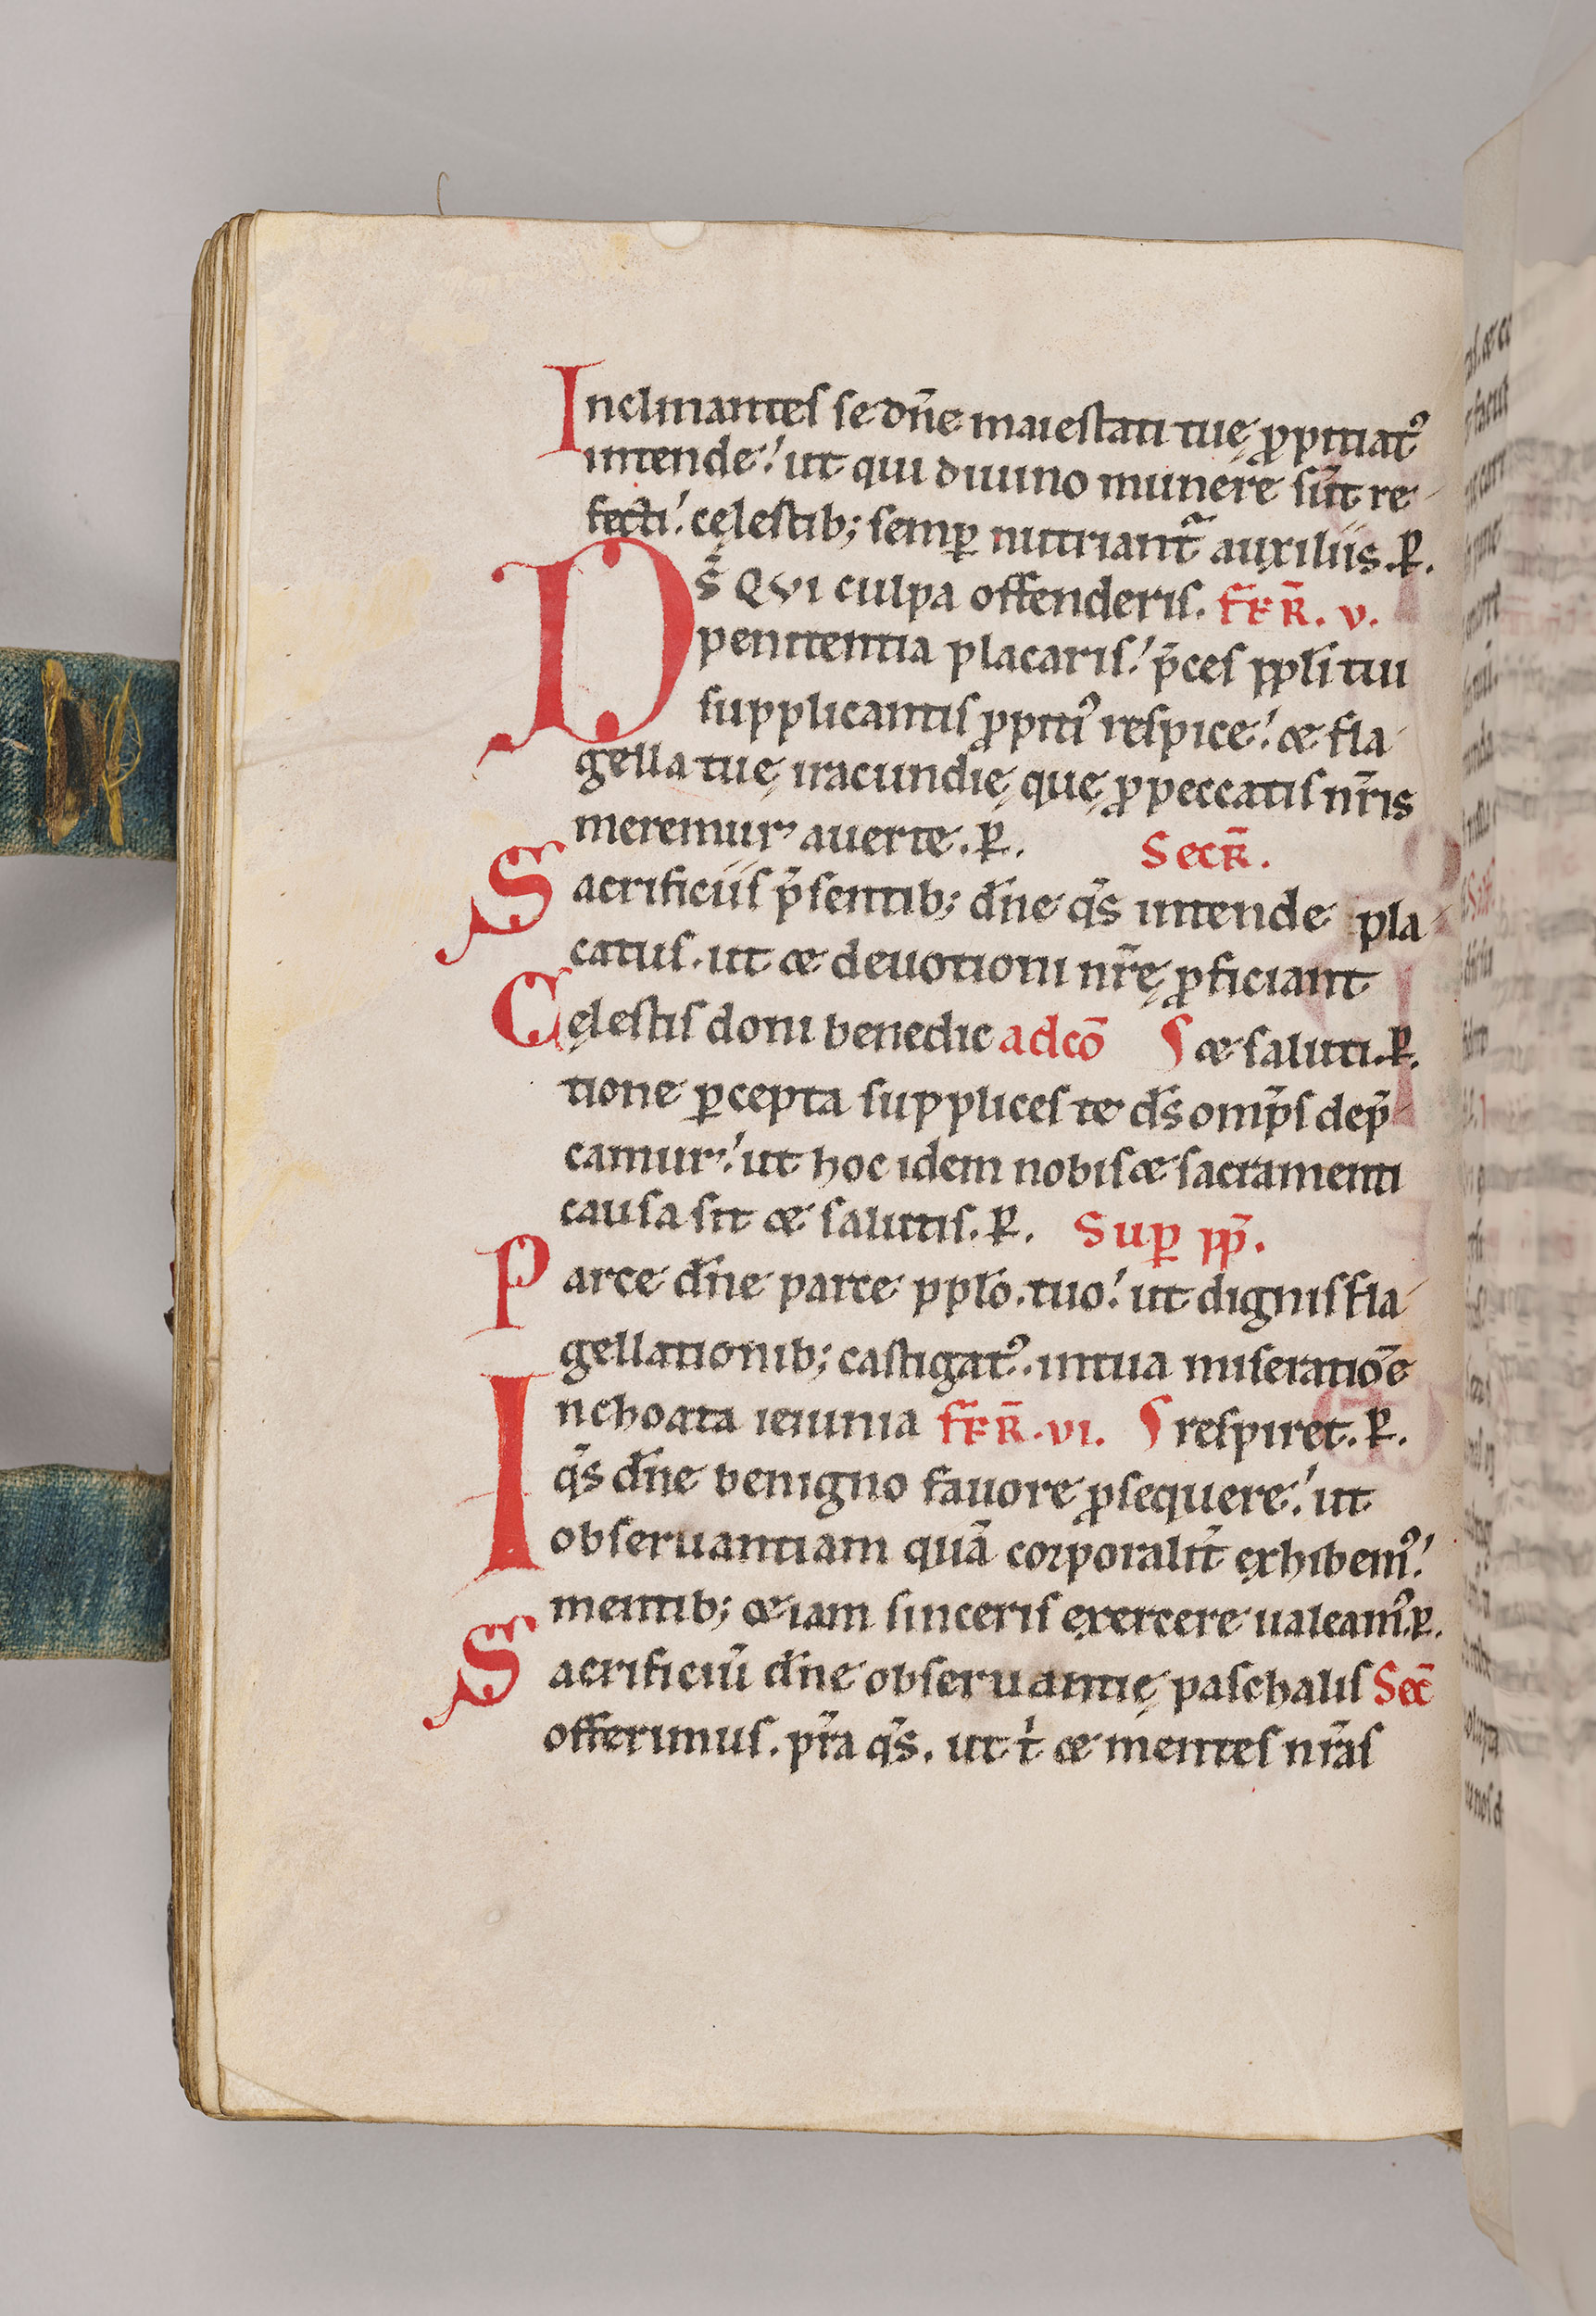 Inclinantes se dn̄e maiestati tuę ꝓpitiatꝰ
intende. ut qui diuino munere sūt re
fecti. cęlestib; semꝑ nutriant̃ auxiliis. P̱.
D̄s QVI culpa offenderis. FER̄. v.
penitentia placaris. p̄ces ppl̄i tui
supplicantis ꝓpitiꝰ respice. & fla
gella tuę iracundię, quę ꝓ peccatis nr̄is
meremur auerte. P̱. SECR̄.
Sacrificiis p̄sentib; dn̄e qs̄ intende pla
catus. ut & deuotioni nr̄ę ꝓficiant
Cęlestis doni benedic adcō & saluti. P̱.
tione ꝑcepta supplices te ds̄ omp̄s dep̄
camur. ut hoc idem nobis & sacramenti
causa sit & salutis. P̱. Suꝑ pp̄.
Parce dn̄e parce pplō. tuo. ut dignis fla
gellationib; castigatꝰ. in tua miseratiōe
Inchoata ieiunia FER̄. VI. respiret. P̱.
qs̄ dn̄e benigno fauore ꝓsequere. ut
obseruantiam quā corporalit̄ exhibemꝰ.
mentib; & iam sinceris exercere ualeamꝰ. P̱.
Sacrificiū dn̄e obseruantię paschalis Sec̄
offerimus. pr̄a qs̄. ut t' & mentes nr̄as